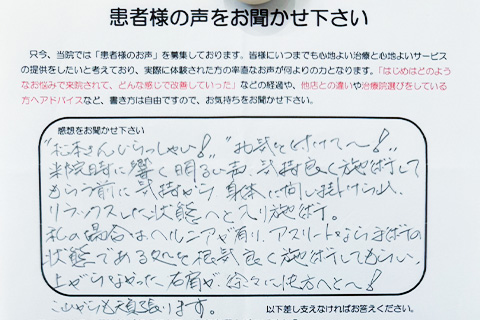 患者様の声をお聞かせ下さい
只今、当院では「患者様のお声」を募集しております。皆様にいつまでも心地よい治療と心地よいサービス
の提供をしたいと考えており、実際に体験された方の率直なお声が何よりの力となります。「はじめはどのよう
なお悩みで来院されて、どんな感じで改善していった」などの経過や、他店との違いや治療院選びをしている
方へアドバイスなど、書き方は自由ですので、お気持ちをお聞かせ下さい。
感想をお聞かせ下さい
"杉本さんいらっしゃい!" "お気をつけて〜!"
来院時に響く明るい声、気持良く施術して
もらう前に気持から身体に問い掛けられ、
リラックスした状態へと入り施術。
私の場合はヘルニアが有り、アスリートなら手術の
状態である処を根気良く施術してもらい、
上がらなかった右肩が、徐々に快方へと〜!
これからも頑張ります。
以下差し支えなければお答えください。